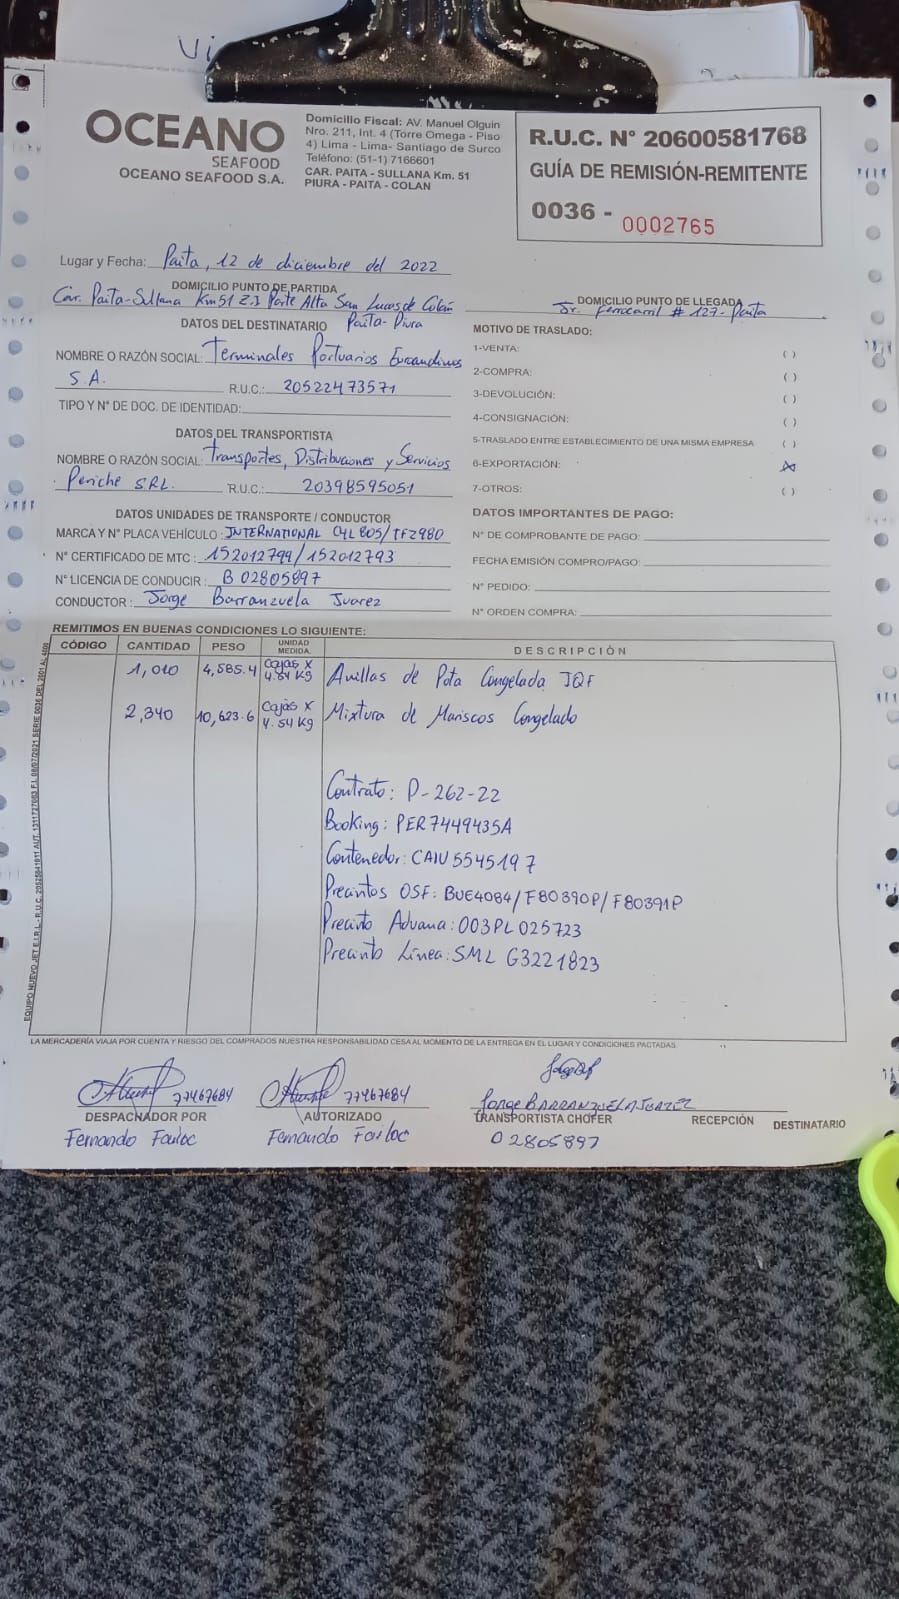 Vi
OCEANO
SEAFOOD
OCEANO SEAFOOD S.A.
Domicilio Fiscal: AV. Manuel Olguin
Nro. 211, Int. 4 (Torre Omega - Piso
4) Lima - Lima- Santiago de Surco
Teléfono: (51-1) 7166601
CAR. PAITA - SULLANA Km. 51
PIURA - PAITA - COLAN
R.U.C. N° 20600581768
GUÍA DE REMISIÓN-REMITENTE
0036 - 0002765
Lugar y Fecha: Paita, 12 de diciembre del 2022
DOMICILIO PUNTO DE PARTIDA
Car. Paita-Sullana Km51 Z.I Parte Alta San Lucas de Colán
Paita-Piura
DOMICILIO PUNTO DE LLEGADA
Jr. ferrocarril # 127- Paita
DATOS DEL DESTINATARIO
NOMBRE O RAZÓN SOCIAL: Terminales Portuarios Euroandinos
S.A. R.U.C.: 20522473571
TIPO Y N° DE DOC. DE IDENTIDAD:
DATOS DEL TRANSPORTISTA
NOMBRE O RAZÓN SOCIAL: Transportes, Distribuciones y Servicios
Periche SRL. R.U.C.: 20398595051
DATOS UNIDADES DE TRANSPORTE / CONDUCTOR
MARCA Y N° PLACA VEHÍCULO: INTERNATIONAL C4L805/TFZ980
N° CERTIFICADO DE MTC: 152012799/152012793
N° LICENCIA DE CONDUCIR: B 02805897
CONDUCTOR: Jorge Barranzuela Juarez
MOTIVO DE TRASLADO:
1-VENTA: ( )
2-COMPRA: ( )
3-DEVOLUCIÓN: ( )
4-CONSIGNACIÓN: ( )
5-TRASLADO ENTRE ESTABLECIMIENTO DE UNA MISMA EMPRESA ( )
6-EXPORTACIÓN: (X)
7-OTROS: ( )
DATOS IMPORTANTES DE PAGO:
N° DE COMPROBANTE DE PAGO:
FECHA EMISIÓN COMPRO/PAGO:
N° PEDIDO:
N° ORDEN COMPRA:
REMITIMOS EN BUENAS CONDICIONES LO SIGUIENTE:
CÓDIGO CANTIDAD PESO UNIDAD MEDIDA. DESCRIPCIÓN
1,010 4,585.4 Cajas x 4.54 Kg Anillas de Pota Congelada IQF
2,340 10,623.6 Cajas x 4.54 Kg Mixtura de Mariscos Congelado
Contrato: P-262-22
Booking: PER7449435A
Contenedor: CAIU 554519 7
Precintos OSF: BUE4084/F80390P/F80391P
Precinto Aduana: 003PL025723
Precinto Línea: SML G3221823
LA MERCADERÍA VIAJA POR CUENTA Y RIESGO DEL COMPRADOS NUESTRA RESPONSABILIDAD CESA AL MOMENTO DE LA ENTREGA EN EL LUGAR Y CONDICIONES PACTADAS.
77467684
DESPACHADOR POR
Fernando Fariloc
77467684
AUTORIZADO
Fernando Fariloc
Jorge BARRANZUELA JUAREZ
TRANSPORTISTA CHOFER
02805897
RECEPCIÓN
DESTINATARIO